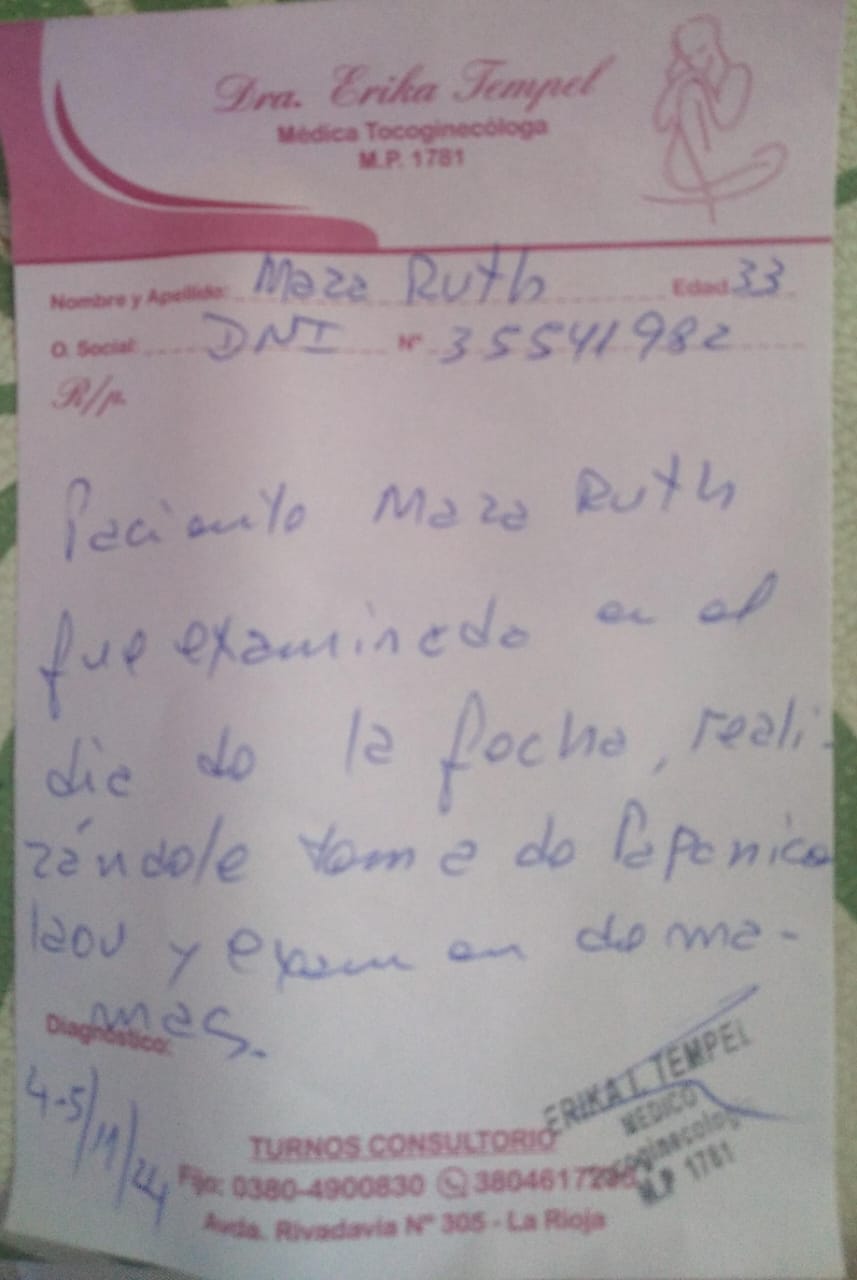 Dra. Erika Tempel
Médica Tocoginecóloga
M.P. 1781
Nombre y Apellido: Maza Ruth Edad 33
O. Social: DNI Nº 35541982
R/p.
Paciente Maza Ruth
fue examinada en el
dia de la fecha, reali-
zándole toma de Papanico
laou y examen de ma-
mas.
Diagnóstico:
4-5/11/24
ERIKA I. TEMPEL
MEDICO
M.P 1781
TURNOS CONSULTORIO
Fijo: 0380-4900830 3804617
Avda. Rivadavia Nº 305 - La Rioja